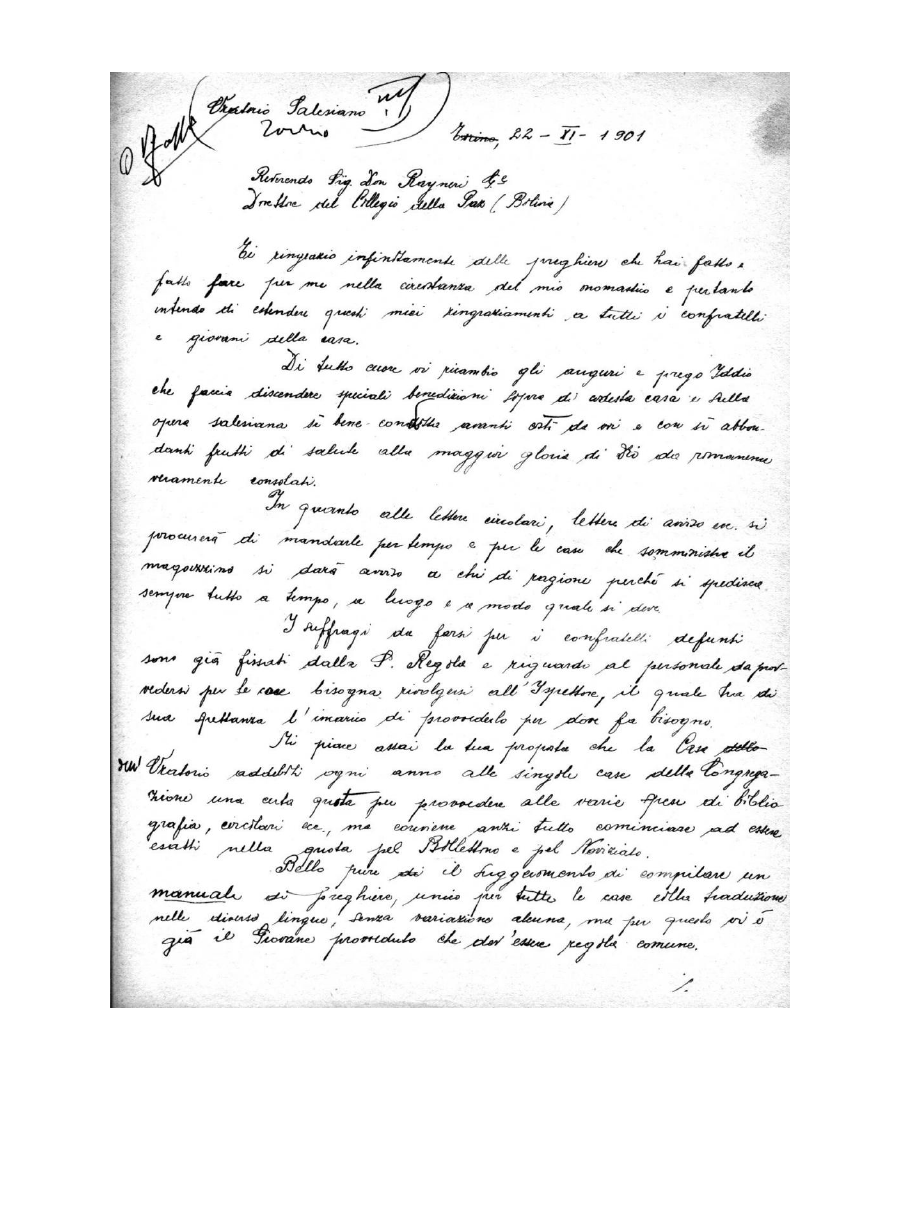 Oratorio Salesiano
Torino
Torino, 22 - XI - 1901
Reverendo Sig. Don Rayneri
Direttore del Collegio della Paz (Bolivia)
Ti ringrazio infinitamente delle preghiere che hai fatto e
fatto fare per me nella circostanza del mio onomastico e pertanto
intendo di estendere questi miei ringraziamenti a tutti i confratelli
e giovani della casa.
Di tutto cuore vi ricambio gli auguri e prego Iddio
che faccia discendere speciali benedizioni sopra di codesta casa e sulla
opera salesiana sì bene condotta avanti costì da voi e con sì abbon-
danti frutti di salute alla maggior gloria di Dio da rimanerne
veramente consolati.
In quanto alle lettere circolari, lettere di avviso ecc. si
procurerà di mandarle per tempo e per le cose che somministra il
magazzino si darà avviso a chi di ragione perchè si spedisca
sempre tutto a tempo, a luogo e a modo quale si deve.
I suffragi da farsi per i confratelli defunti
sono già fissati dalla S. Regola e riguardo al personale da prov-
vedersi per le case bisogna rivolgersi all'Ispettore, il quale ha di
sua spettanza l'incarico di provvederlo per dove fa bisogno.
Mi piace assai la tua proposta che la Casa dello
Oratorio addebiti ogni anno alle singole case della Congrega-
zione una certa quota per provvedere alle varie spese di biblio
grafia, circolari ecc., ma conviene anzi tutto cominciare ad essere
esatti nella quota pel Bollettino e pel Noviziato.
Bello pure di il suggerimento di compilare un
manuale di preghiere, unico per tutte le case colla traduzione
nelle diverse lingue, senza variazione alcuna, ma per questo vi è
già il Giovane provveduto che dev'essere regola comune.